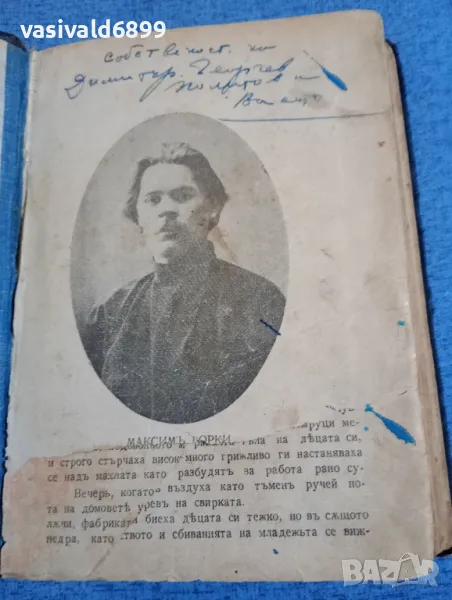 vasivald6899
собственост на
Димитър Георгев
МАКСИМЪ ГОРКИ
на дѣцата си,
и строго стърчаха високо много грижливо ги настаняваха
се надъ махлата като разбудятъ за работа рано су-
Вечерь, когато въздуха като тъменъ ручей по-
та на домоветѣ уревъ на свирката.
лѫчи, фабриката биеха дѣцата си тежко, но въ сѫщото
недра, като ството и сбиванията на младежьта се виж-
bazar